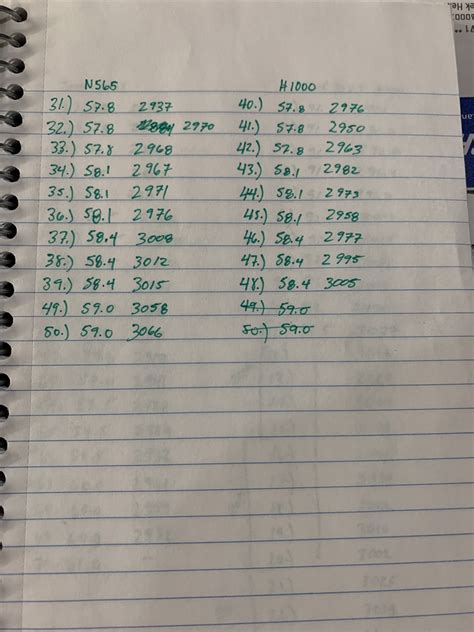 N565 H1000
31.) 57.8 2937 40.) 57.8 2976
32.) 57.8 2970 41.) 57.8 2950
33.) 57.8 2968 42.) 57.8 2963
34.) 58.1 2967 43.) 58.1 2982
35.) 58.1 2971 44.) 58.1 2975
36.) 58.1 2976 45.) 58.1 2958
37.) 58.4 3008 46.) 58.4 2977
38.) 58.4 3012 47.) 58.4 2995
39.) 58.4 3015 48.) 58.4 3005
49.) 59.0 3058 49.) 59.0
50.) 59.0 3066 50.) 59.0